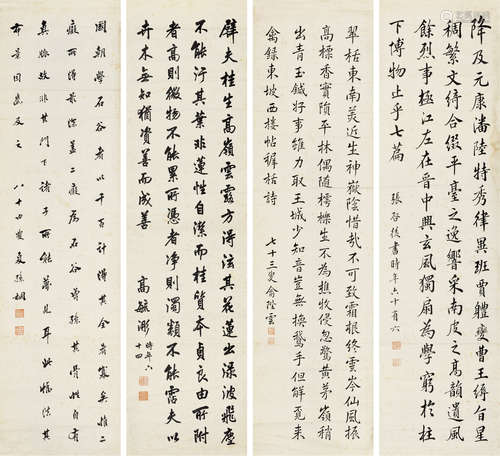 降及元康潘陸特秀律異班賈體變曹王縟旨星
稠繁文綺合綴平臺之逸響采南皮之高韻遺風
餘烈事極江左在晉中興玄風獨扇為學窮於柱
下博物止乎七篇
張谷俊書時年六十有六
翠栝東南美近生神嶽陰惜哉不可致霜根終雲岑仙風振
高標香實隕平林偶隨樗櫟生不為樵牧侵忽驚黃茅嶺稍
出青玉鍼好事雖力取王城少知音豈無換鵝手但解覓來
禽錄東坡西樓帖穉栝詩
七十三叟俞陛雲
辟夫桂生高嶺雲露方得泫其花蓮出淥波飛塵
不能汙其葉非蓮性自潔而桂質本貞良由所附
者高則微物不能累所憑者凈則濁類不能霑夫以
卉木無知猶資善而成善
高毓浵
時年六十四
國朝學石谷者以千百計得其合者寥矣惟二
癡所得最深蓋二癡居石谷
其門下諸子所能夢見耳此
八十四叟